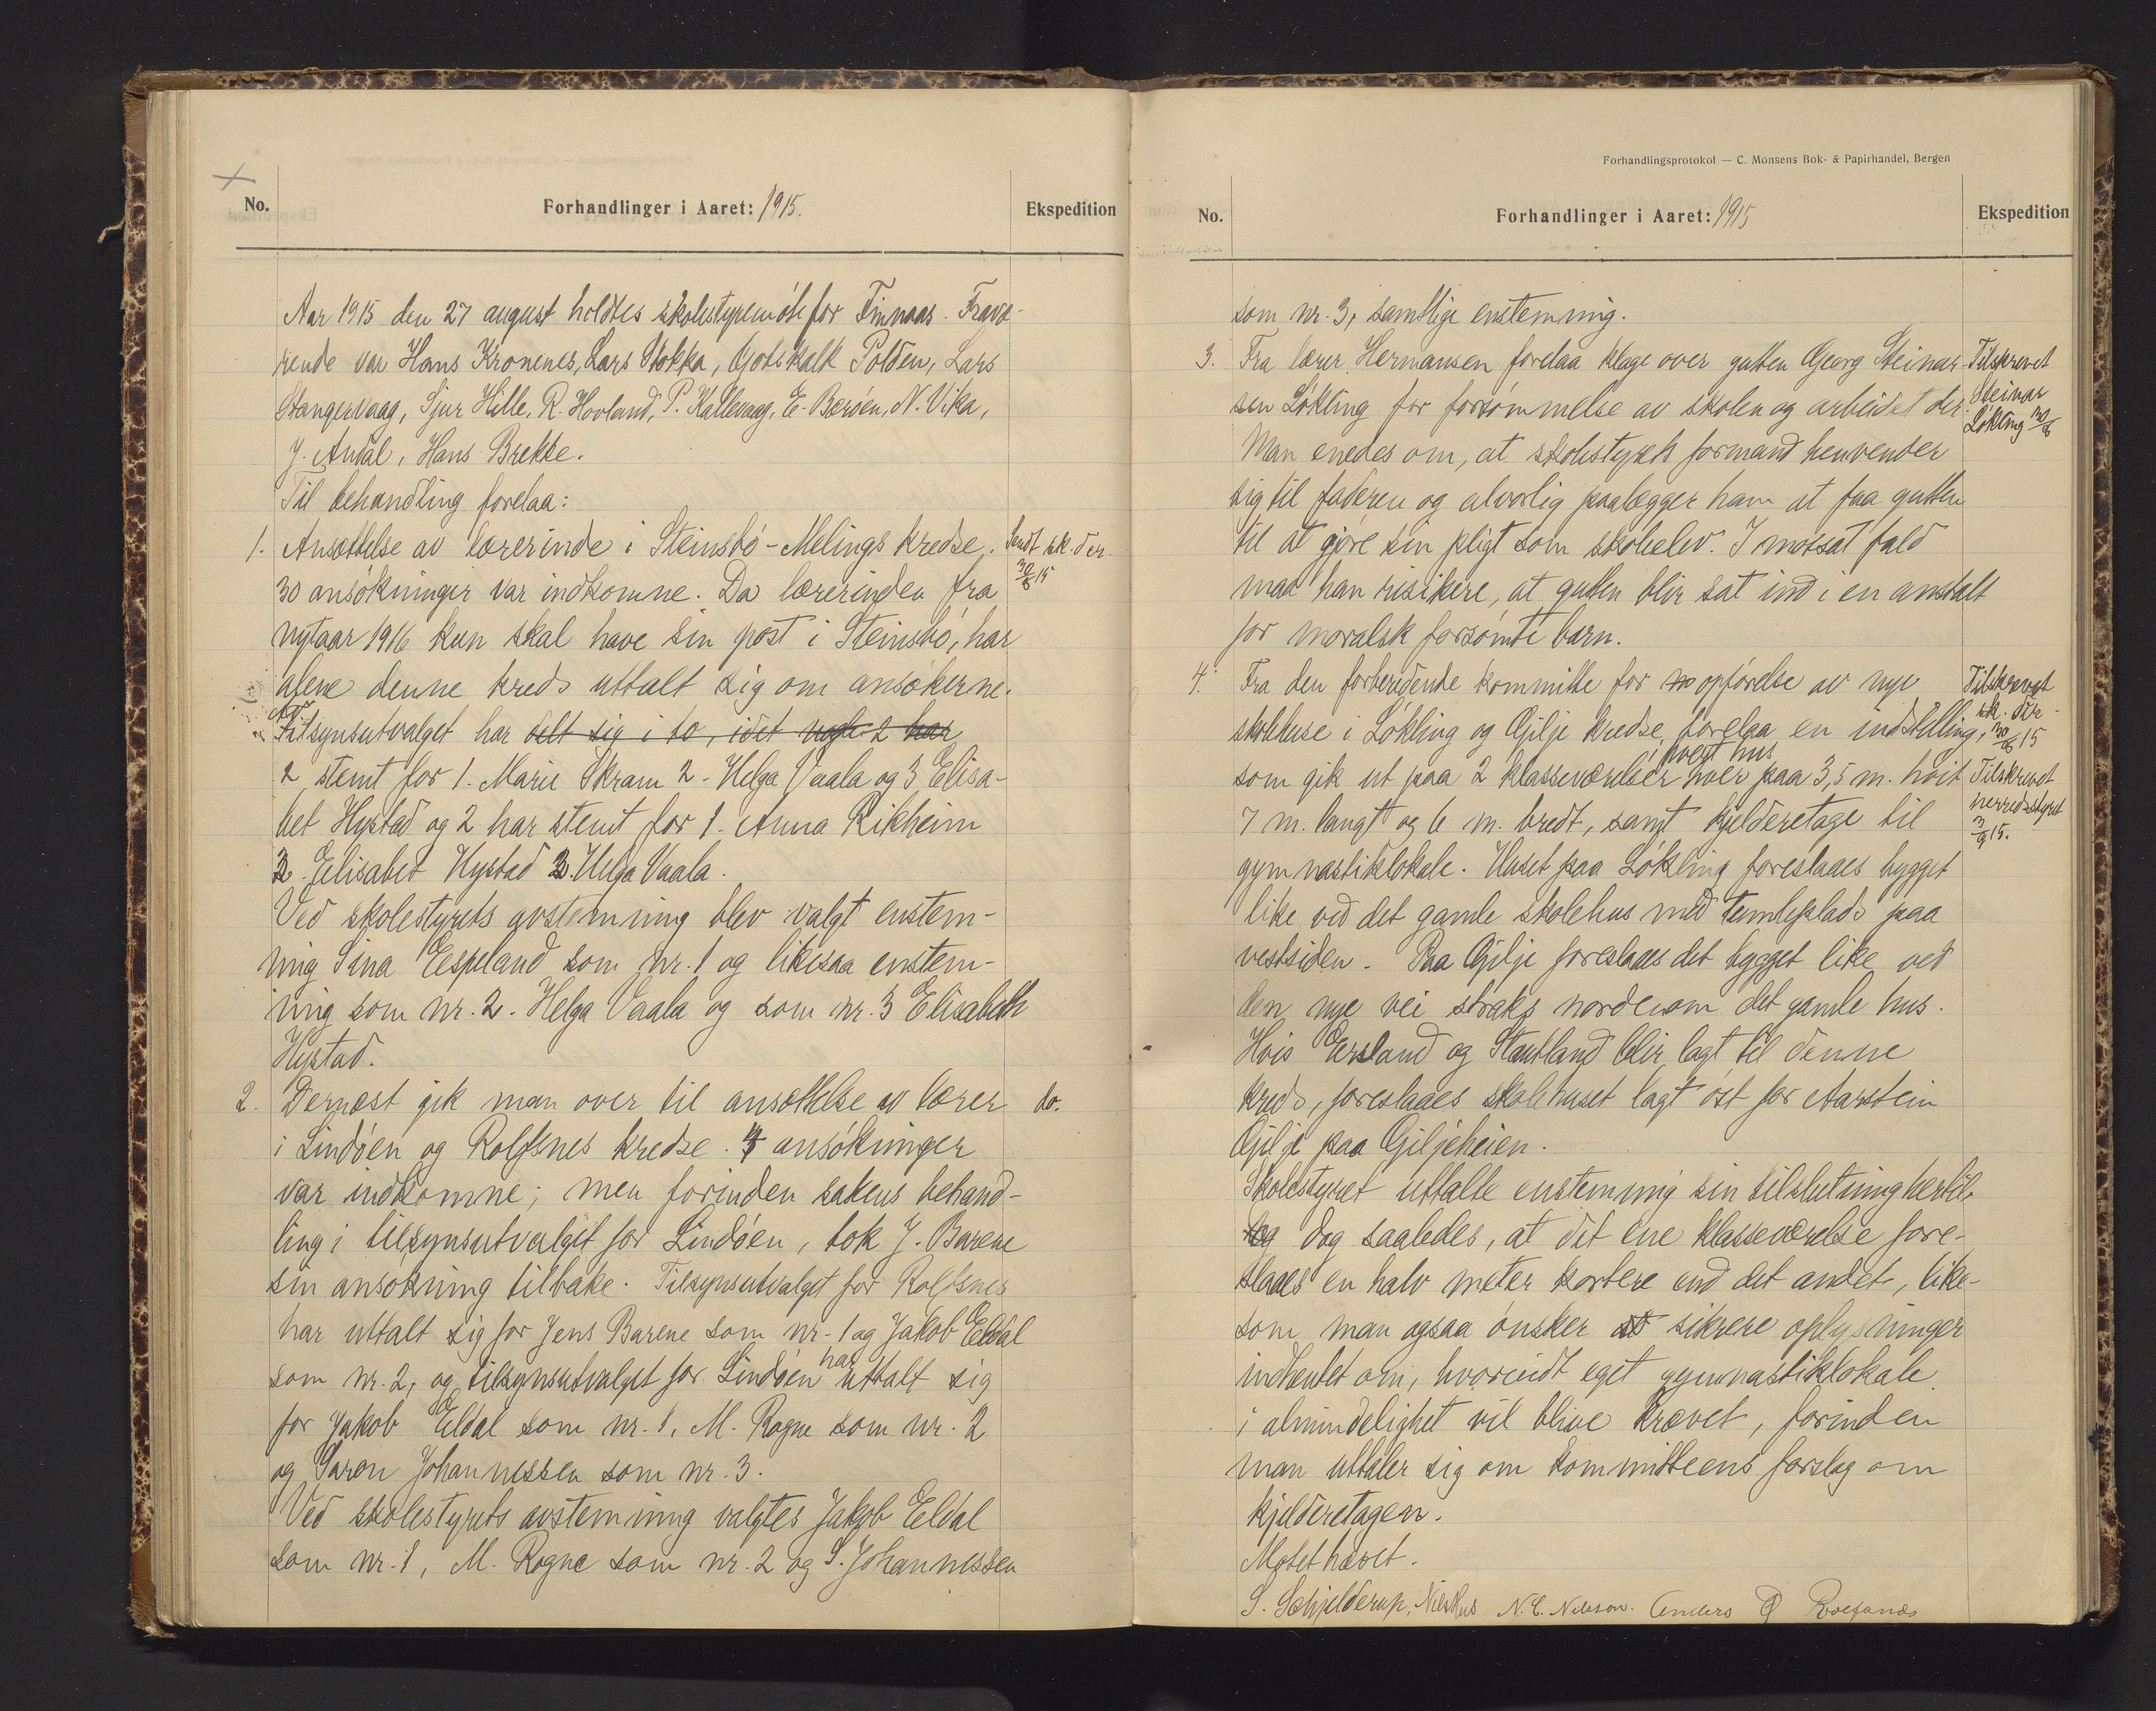 No.
Forhandlinger i Aaret: 1915.
Ekspedition
Aar 1915 den 27 august holdtes skolestyremöte for Finnaas. Fravæ-
rende var Hans Kronenes, Lars Stokka, Gotskalk Polden, Lars
Stangervaag, Sjur Hille, R. Hovland, P. Kallevaag, E. Beröen, N. Vika,
J. Andal, Hans Brekke.
Til behandling forelaa:
1. Ansættelse av lærerinde i Steinsbö-Melings kredse. Sendt sk. dir.
30/8 15
30 ansökninger var indkomne. Da lærerinden fra
nytaar 1916 kun skal have sin post i Steinsbö, har
alene denne kreds uttalt sig om ansökerne.
Av
tilsynsutvalget har delt sig i to, idet nogle 2 har
2 stemt for 1. Marie Skram 2. Helga Vaala og 3 Elisa-
bet Hystad og 2 har stemt for 1. Anna Rikheim
2. Elisabet Hystad 3. Helga Vaala.
Ved skolestyrets avstemning blev valgt enstem-
mig Sina Espeland som nr. 1 og likesaa enstem-
mig som nr. 2. Helga Vaala og som nr. 3 Elisabeth
Hystad.
2. Dernæst gik man over til ansættelse av lærer do.
i Lindöen og Rolfsnes kredse. 4 ansökninger
var indkomne; men forinden sakens behand-
ling i tilsynsutvalget for Lindöen, tok J. Barene
sin ansökning tilbake. Tilsynsutvalget for Rolfsnes
har uttalt sig for Jens Barene som nr. 1 og Jakob Eldal
som nr. 2, og tilsynsutvalget for Lindöen har uttalt sig
for Jakob Eldal som nr. 1, M. Rogne som nr. 2
og Søren Johannessen som nr. 3.
Ved skolestyrets avstemning valgtes Jakob Eldal
som nr. 1, M. Rogne som nr. 2 og S. Johannessen
Forhandlingsprotokol — C. Monsens Bok- & Papirhandel, Bergen
No.
Forhandlinger i Aaret: 1915
Ekspedition
som nr. 3, samtlige enstemmig.
3. Fra lærer Hermansen forelaa klage over gutten Georg Steinar- Tilskrevet
sen Lökling for forsömmelse av skolen og arbeidet der. Steinar
Lökling 30/8
Man enedes om, at skolestyrets formand henvender
sig til faderen og alvorlig paalægger ham at faa gutten
til at gjöre sin pligt som skoleelev. I motsat fald
maa han risikere, at gutten blir sat ind i en anstalt
for moralsk forsömte barn.
4. Fra den forberedende kommitte for opförelse av nye Tilskrevet
sk. dir
skolehuse i Lökling og Gilje kredse forelaa en indstilling, 30/8 15
hvert hus
som gik ut paa 2 klasseværelser hver paa 3,5 m. höit Tilskrevet
herredsstyret
7 m. langt og 6 m. bredt, samt kjelderetage til 3/9 15.
gymnastiklokale. Huset paa Lökling foreslaaes bygget
like ved det gamle skolehus med tumleplads paa
vestsiden. Paa Gilje foreslaaes det bygget like ved
den nye vei straks nordenom det gamle hus.
Hvis Eersland og Stautland blir lagt til denne
kreds, foreslaaes skolehuset lagt öst for Aarstein
Gilje paa Giljeheien.
Skolestyret uttalte enstemmig sin tilslutning hertil,
og dog saaledes, at det ene klasseværelse fore-
slaaes en halv meter kortere end det andet, like-
som man ogsaa önsker at sikrere oplysninger
indhentet om, hvorvidt eget gymnastiklokale
i almindelighet vil blive krævet, forinden
man uttaler sig om kommitteens forslag om
kjelderetagen.
Mötet hævet.
S. Schjelderup, Nils Hus N. C. Nilsson. Anders Roefsnæs